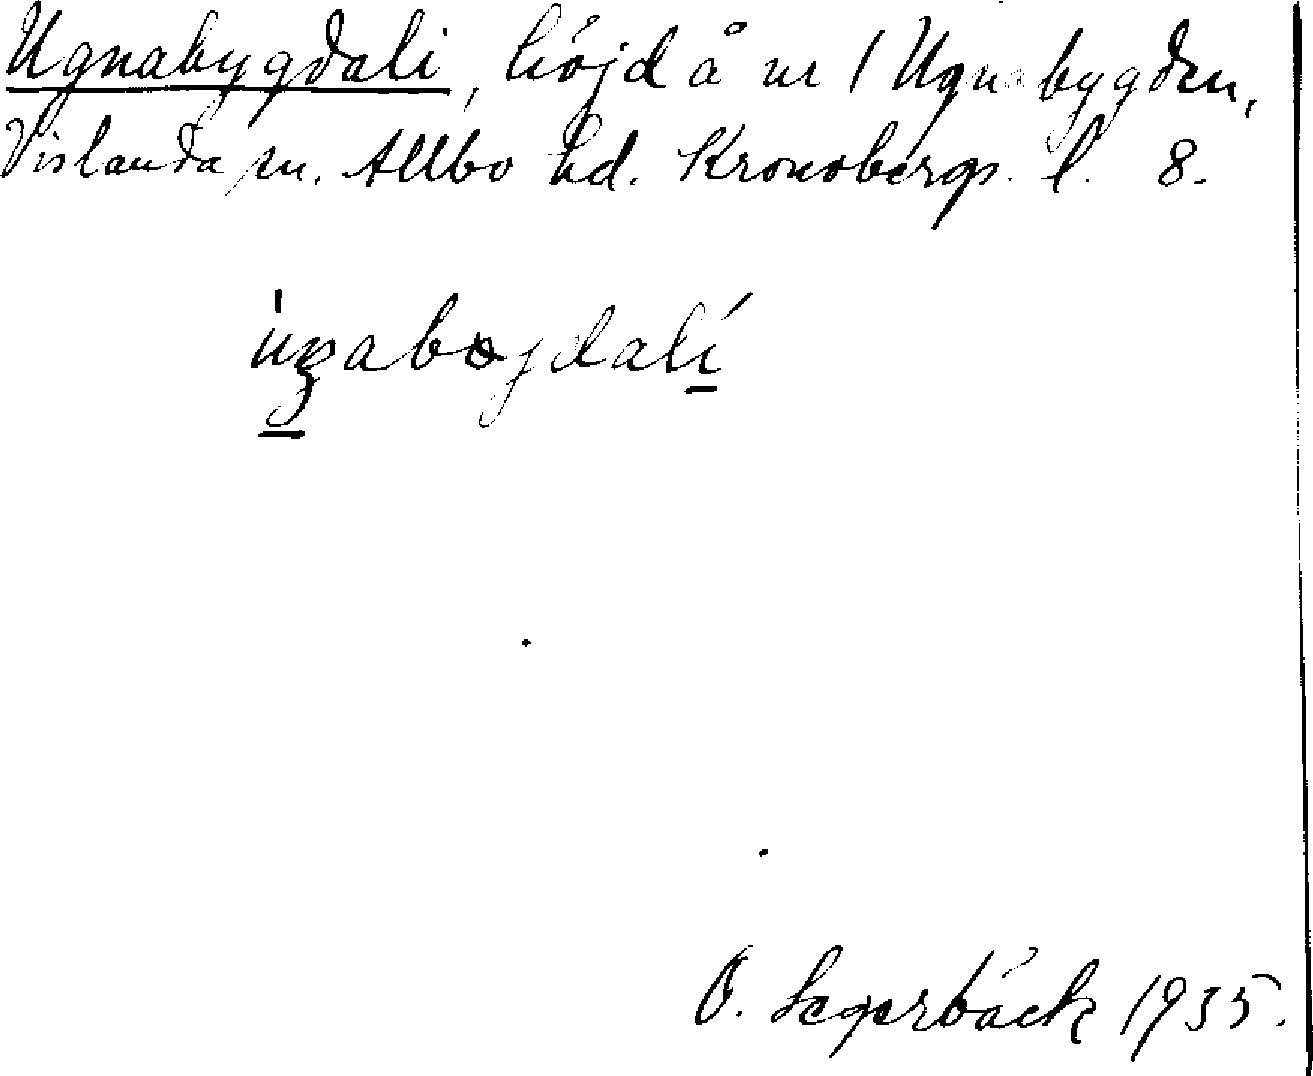 Ugnabygdali, höjd å nr 1 Ugnabygden,
Vislanda sn. Allbo hd. Kronobergs. l. 8.
O. Segerbäck 1935.